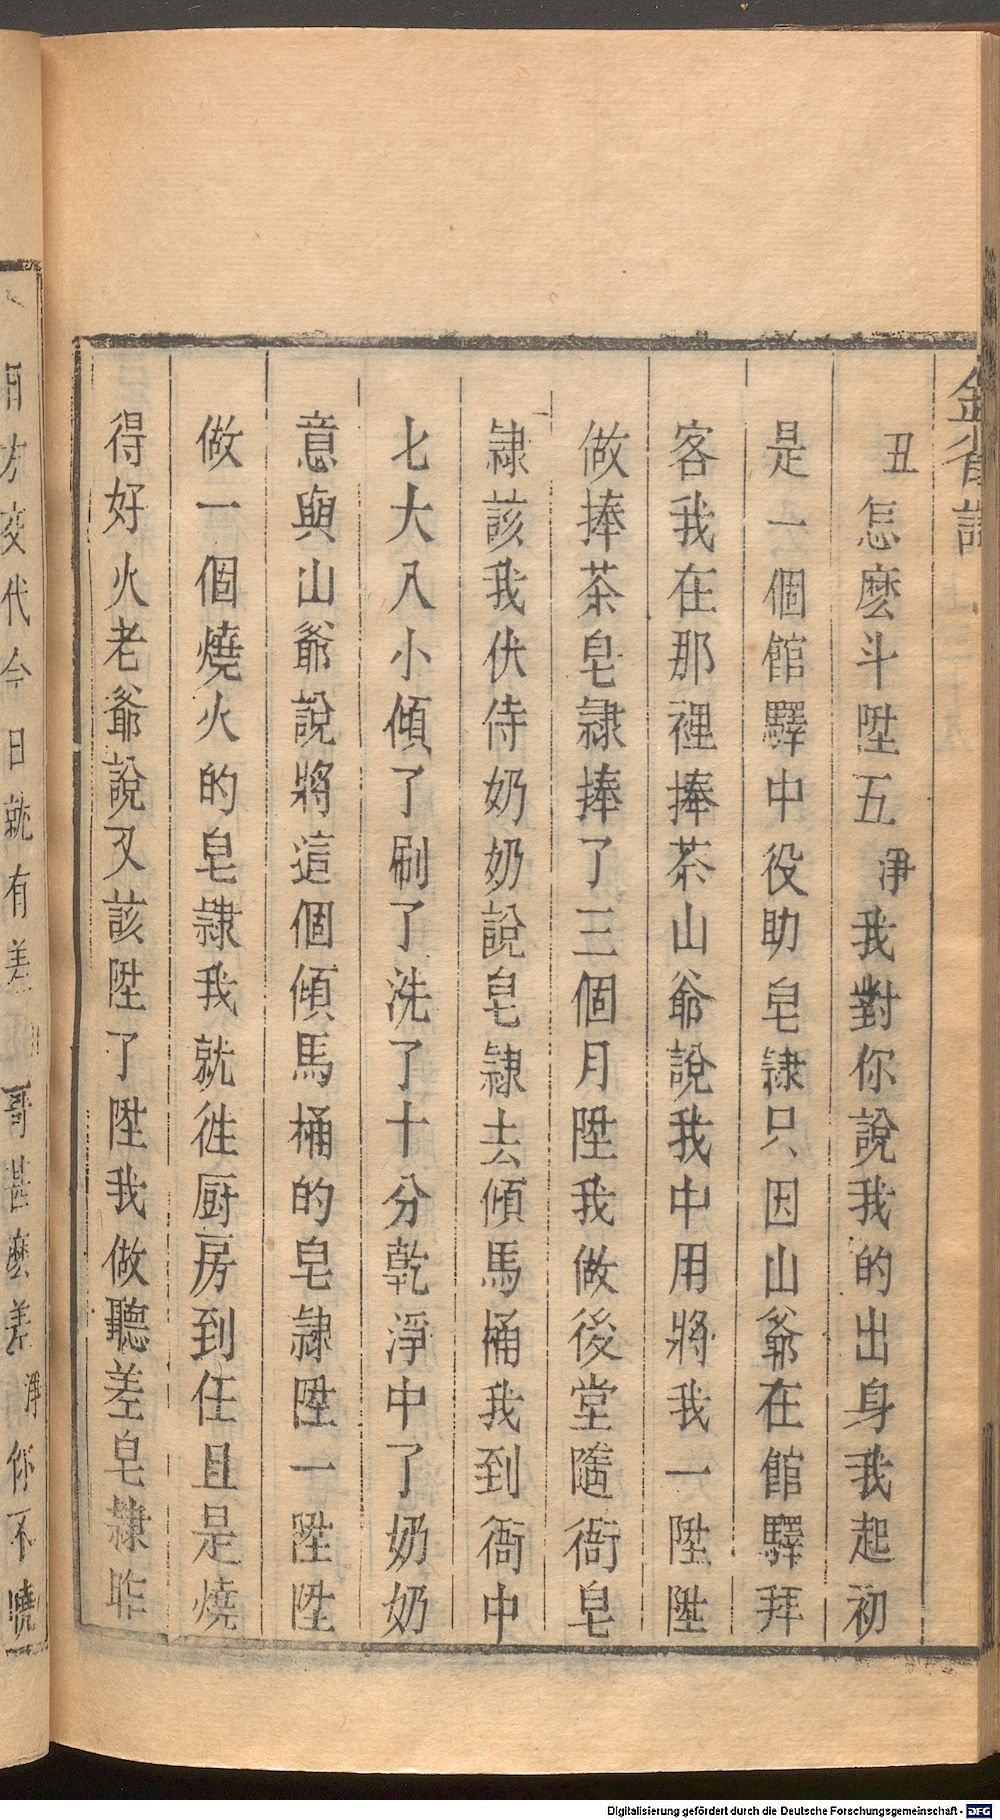 丑怎麽斗陞五淨我對你說我的出身我起初
是一個館驛中役助皂隷只因山爺在館驛拜
客我在那裡捧茶山爺說我中用將我一陞陞
做捧茶皂隷捧了三個月陞我做後堂隨衙皂
隷該我伏侍奶奶說皂隷去傾馬桶我到衙中
七大八小傾了刷了洗了十分乾淨中了奶奶
意與山爺說將這個傾馬桶的皂隷陞一陞陞
做一個燒火的皂隷我就徃厨房到任且是燒
得好火老爺說又該陞了陞我做聽差皂隷昨
方交代今日就有差
哥甚麽差淨你不曉
Digitalisierung gefördert durch die Deutsche Forschungsgemeinschaft - DFG